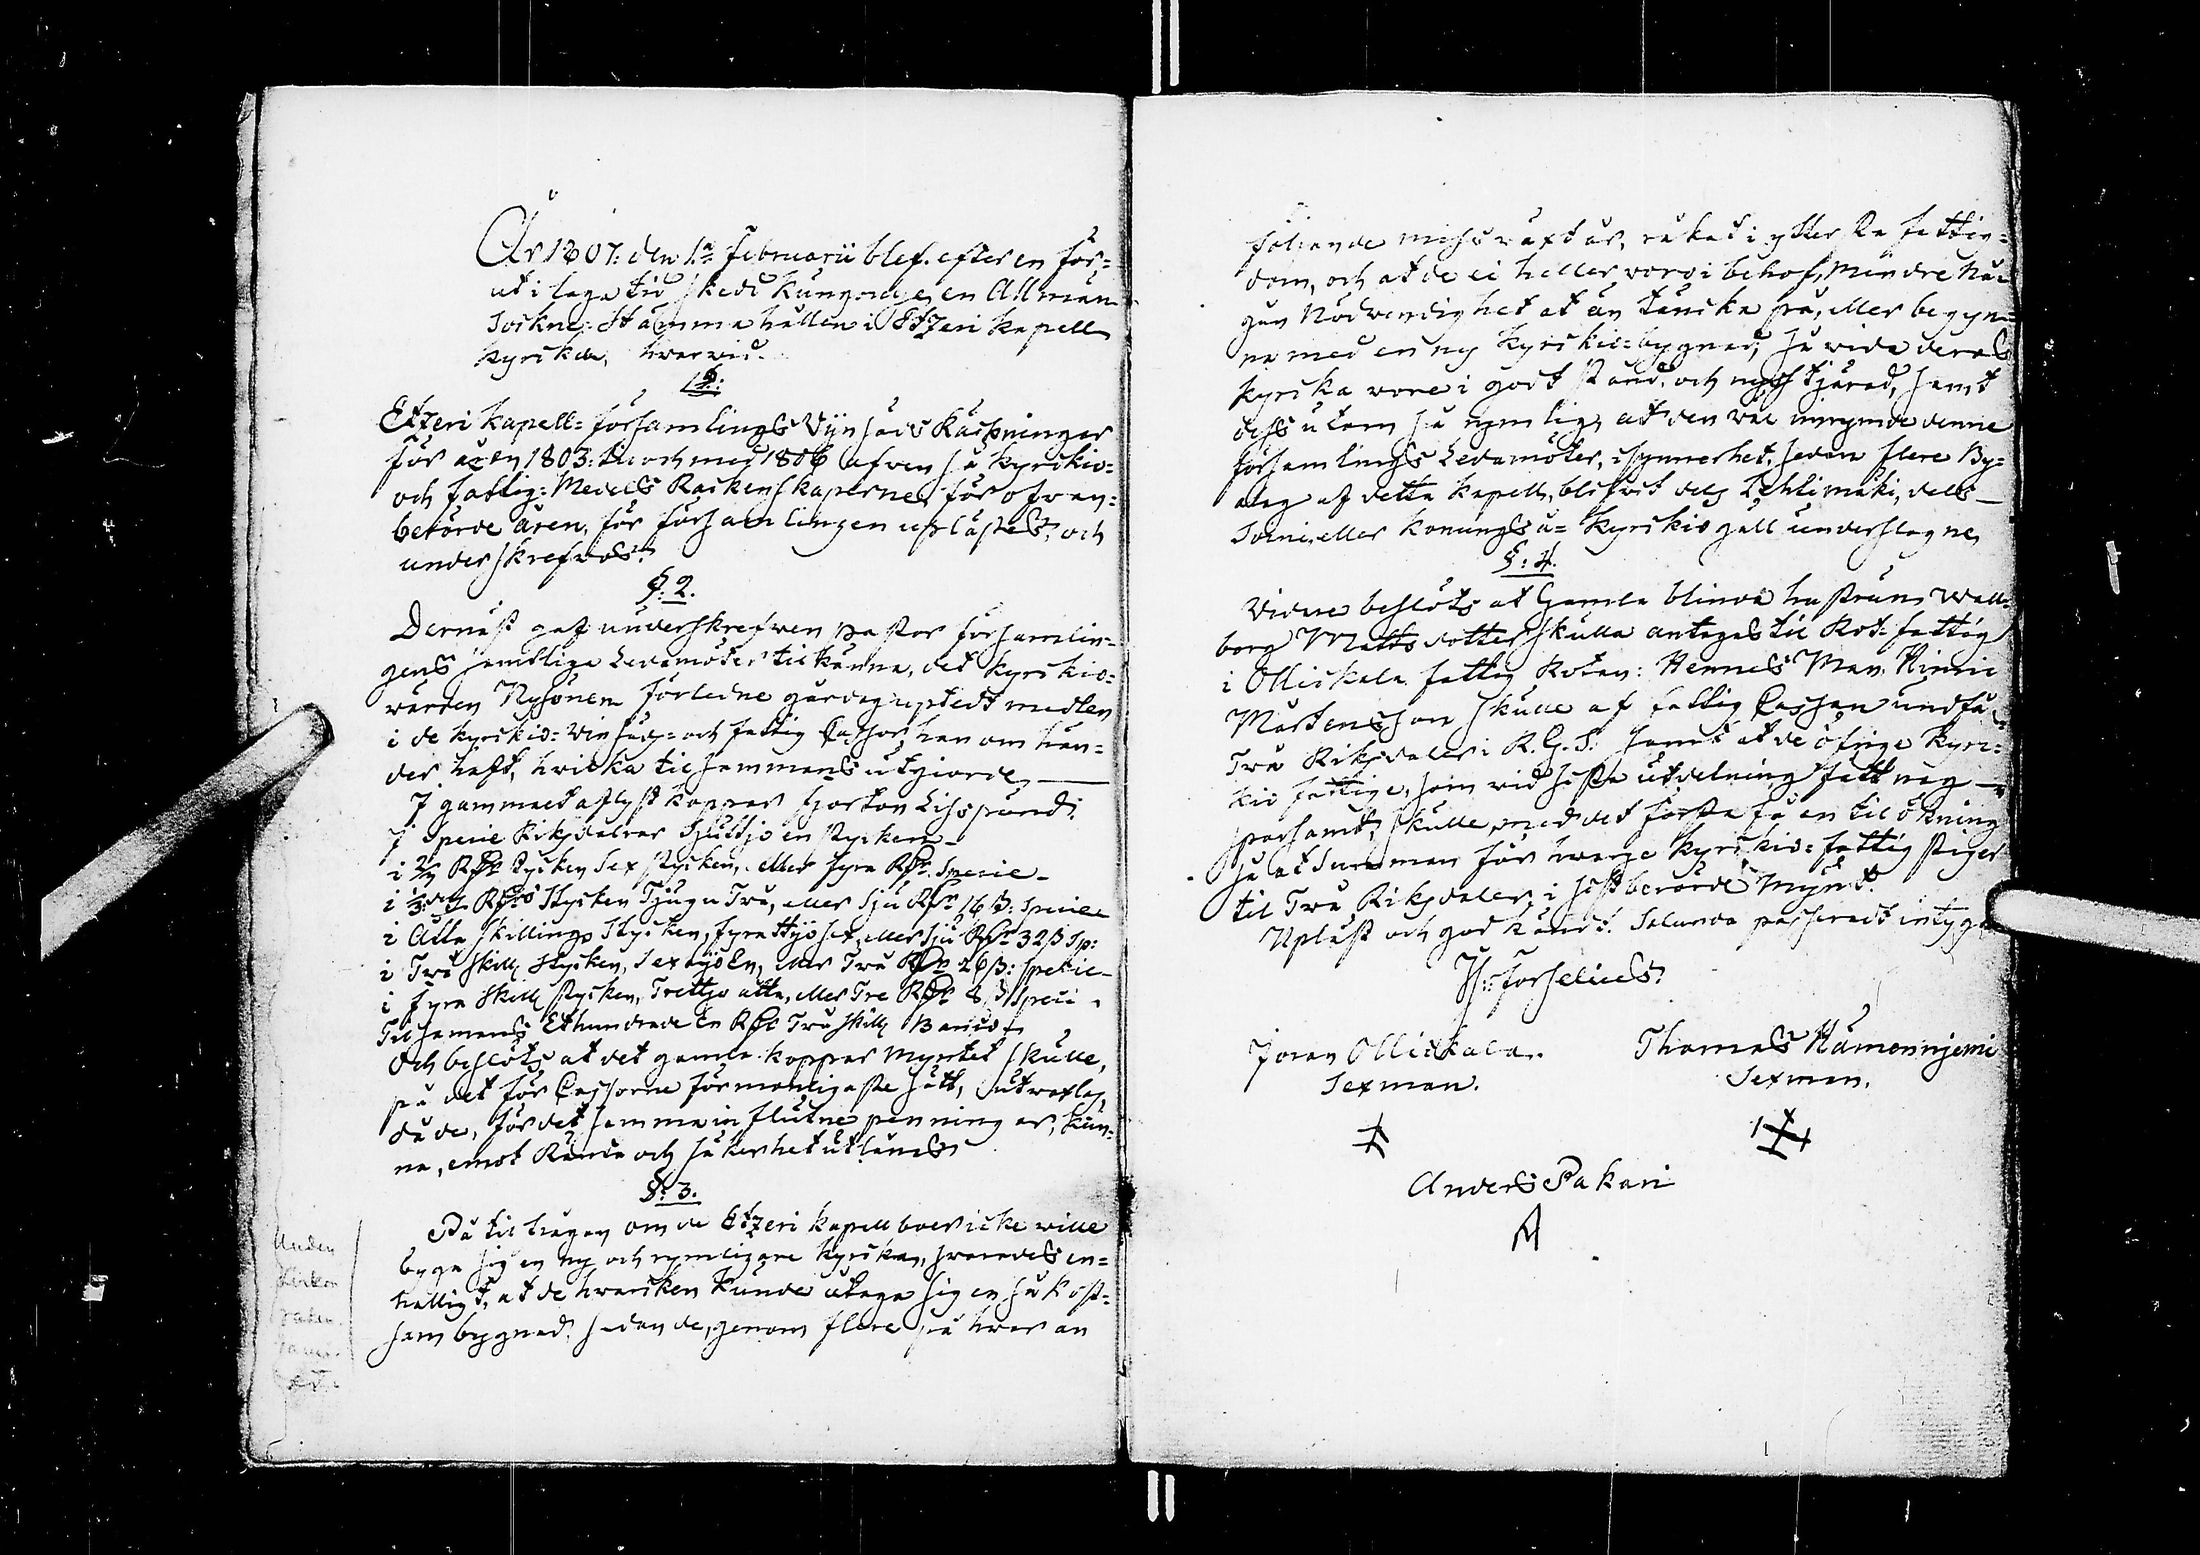 År 1807: den 1a Februarii blef. efter en för=
ut i laga tid skedd kungörelse en Allmän
Sockne=Stämma hållen i Etzeri kapell
kyrcka, hvarvid.
1 §:
Etzeri kapell=församlings Vijnsäds Räckninger
för åren 1803: til och med 1806 äfven så kyrckio=
och fattig=Medels Räckenskaperne för ofvan=
berörde åren, för församlingen uplästes, och
underskrefvos.
§: 2.
Dernäst gaf underskrefven Pastor församlin=
gens samtlige Ledamöter tilkänna, det kyrckio=
värden Nysönen förledne gårdag uptedt medlen
i de kyrckio= Vinsäds= och fattig Cassor, han om hän=
der haft, hvilka tilsammans utgiorde
I gammalt aflyst koppar fjorton Lispund:
I Specie Riksdalrar Sjuttjo en stycken
i 2/3 Rdr Stycken Sex stycken, eller fyra Rdr. Specie
i 1/3 dels Rdrs Stycken Tjugu Två, eller Sju Rdr 16 ß: Specie
i Åtta skillings Stycken, fyrattijo sex, eller sju Rdr 32 ß Sp:
i Två skill. stycken, Sextijo En, eller Två Rdr 26 ß: Specie
i fyra skill. stycken, Trettjo åtta, eller Tre Rdr 8 ß Speci
Tilsamans Ethundrade En Rdr Två skill. Banco
Och beslöts at det gamla kopparmyntet skulle,
på det för Cassorne förmonligaste sätt, utvexlas,
då de, för det samma influtne penningar, kun=
na, emot Ränta och säkerhet utlånas
§: 3.
På tilfrågan om de Etzeri kapellboer icke ville
byga sig en ny och rymligare kyrcka, svarades en=
hälligt, at de hvarcken kunde åtaga sig en så kost=
sam bygnad, sedan de, genom flere på hvar an
följande missväxt år, råkat i yttersta fattig=
dom, och at de ei heller voro i behof, mindre Nå=
gon Nödvendighet at än täncka på, eller begyn=
na med en ny kyrckio=bygnad, så vida deras
kyrcka vore i godt stånd, och nyss tjärad, samt
dess utom så rymlig, at den väl inrymde denne
församlings Ledamöter, i synnerhet, sedan flere By=
alag af detta kapell, blifvit dels Lehtimäki, dels
Soini eller Konungså= Kyrckiogäll underslagne
§: 4.
Vidare beslöts at Gamla blinda hustrun Wall=
borg Matts dotter skulle antagas til Rot=fattig
i Ollickala fattig Rotan: Hennes Man. Hinric
Mårtensson skulle af fattig Cassan undfå
Två Riksdaler i R.G.S. samt at de öfrige kyrc=
kio fattige, som vid sista utdelning fått nog
sparsamt, skulle, med det första få en tilökning
så at summan för hvarje kyrckio=fattig stiger
til Två Riksdaler, i sistberörde Mynt.
Upläst och godkändt. Salunda passeradt intyga
Joran Ollickala.
Sexman.
Thomas Hämeenniemi
Sexman.
Anders Pakari